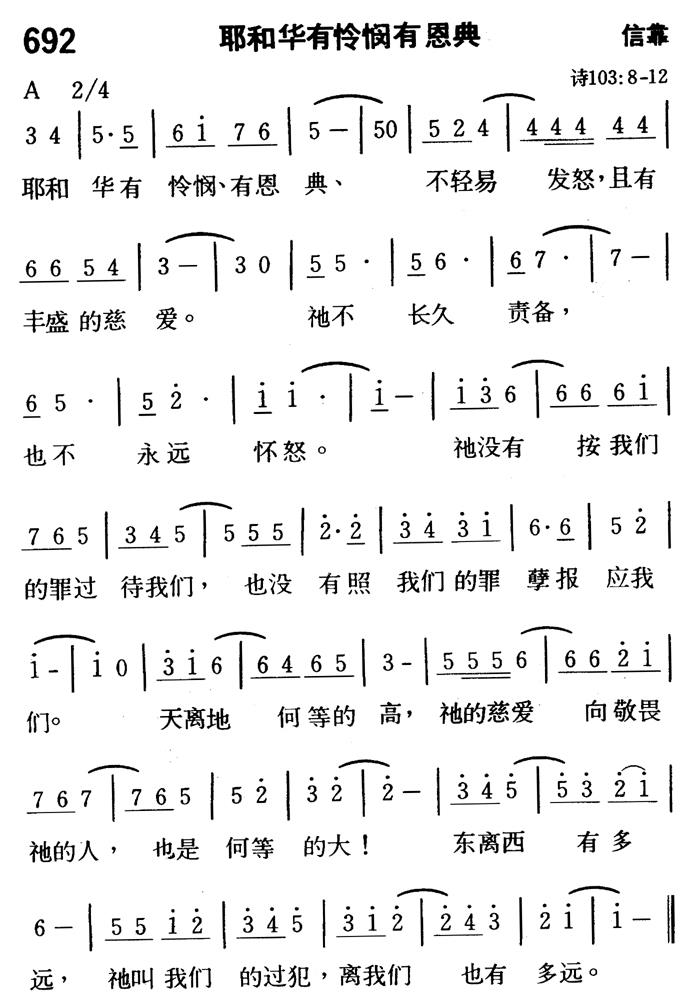 692 耶和华有怜悯有恩典 信靠
A 2/4 诗103:8-12
3 4 | 5·5 | 6 i 7 6 | 5 — | 50 | 5 2 4 | 4 4 4 4 4 |
耶和 华有 怜悯、有恩 典、 不轻易 发怒,且有
6 6 5 4 | 3 — | 3 0 | 5 5 · | 5 6 · | 6 7 · | 7 — |
丰盛的慈 爱。 祂不 长久 责备,
6 5 · | 5 2̇ · | i i · | i — | i 3̇ 6 | 6 6 6 i |
也不 永远 怀怒。 祂没有 按我们
7 6 5 | 3 4 5 | 5 5 5 | 2̇·2̇ | 3̇ 4̇ 3̇ i | 6·6 | 5 2̇ |
的罪过 待我们, 也没 有照 我们的罪 孽报 应我
i - | i 0 | 3̇ i 6 | 6 4 6 5 | 3 - | 5 5 5 6 | 6 6 2̇ i |
们。 天离地 何等的 高, 祂的慈爱 向敬畏
7 6 7 | 7 6 5 | 5 2̇ | 3̇ 2̇ | 2̇ — | 3̇ 4̇ 5̇ | 5̇ 3̇ 2̇ i |
祂的人, 也是 何等 的大! 东离西 有多
6 — | 5 5 i 2̇ | 3̇ 4̇ 5̇ | 3̇ i 2̇ | 2̇ 4̇ 3̇ | 2̇ i | i — ‖
远, 祂叫我们 的过犯,离我们 也有 多远。